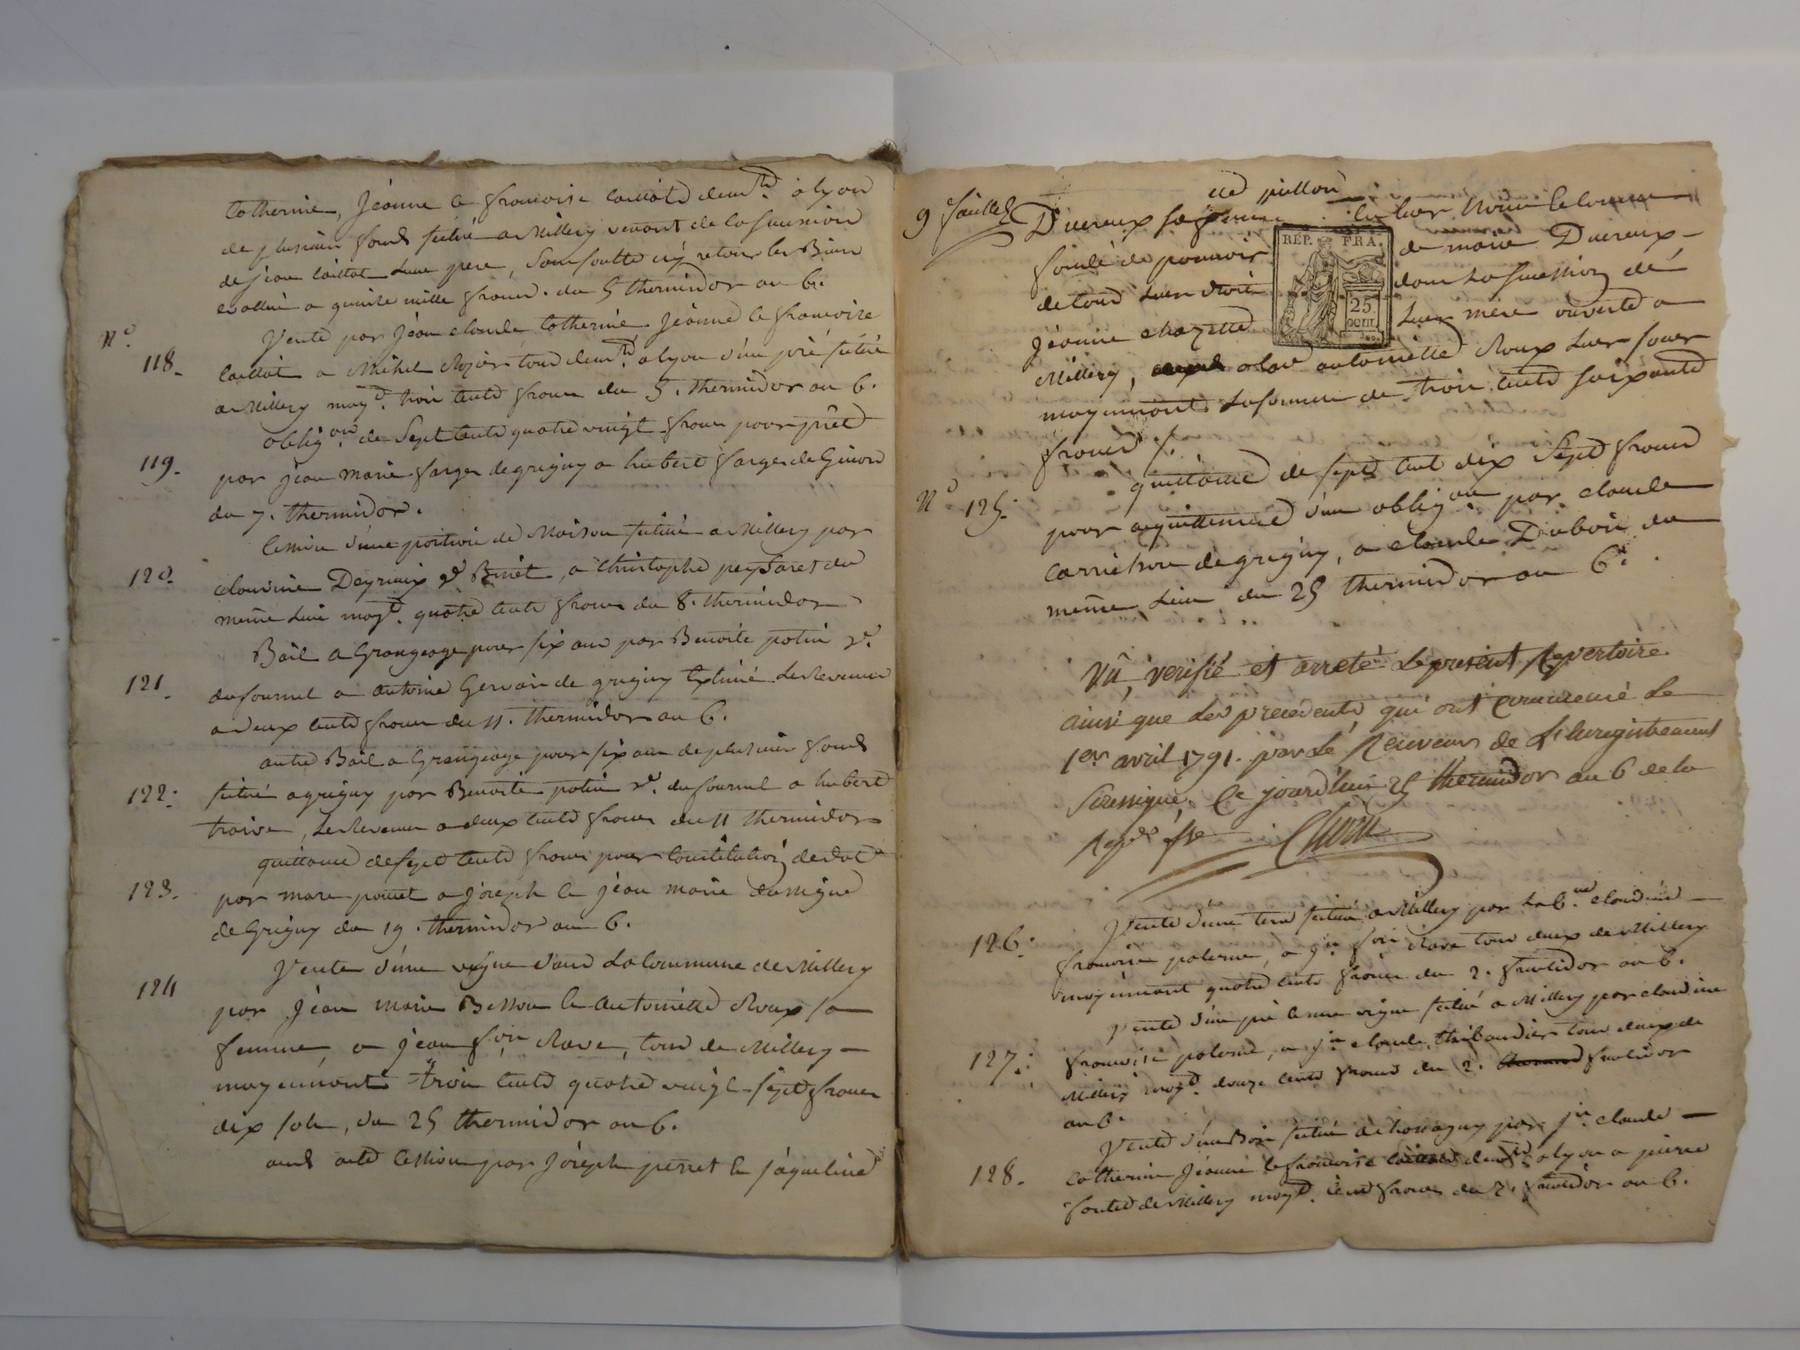 Catherine, Jeanne & francoise caillot demts a lyon
de plusieurs fonds situés a Millery venant de la succession
de jean caillot leur pere, sans soulte ny retour les Biens
evalués a quinze mille francs. du 5 thermidor an 6.
No.
118. Vente par Jean claude Catherine Jeanne & francoise
caillot a Michel Rozier tous demts a lyon d'un pré situé
a Millery moyt. trois cents francs du 5. thermidor an 6.
119. obligon de Sept cents quatre vingt francs pour prêt
par jean marie farges de grigny a hubert farges de Givors
du 7. thermidor.
120. Cession d'une portion de Maison située a Millery par
claudine Deyrieux ve Binet, a Christophe peyssaret du
même lieu moyt. quatre cents francs du 8. thermidor
121. Bail a Grangeage pour six ans par Benoite potin ve.
dufournel a antoine Gervais de grigny Estimé le Revenu
a deux cents francs du 11. thermidor an 6.
122. autre Bail a Grangeage pour six ans de plusieurs fonds
situés a grigny par Benoite potin ve. dufournel a hubert
le Revenu a deux cents francs du 11 thermidor
123. quittance de sept cents francs pour Constitution de dot
par marc a joseph & jean marie
de Grigny du 19. thermidor an 6.
124 Vente d'une vigne dans la Commune de Millery
par Jean marie Besson & antoinette Roux sa
femme, a jean fois Rave, tous de Millery
moyennant trois cents quatre vingt-sept francs
dix sols, du 25 thermidor an 6.
aud. acte Cession par Joseph perret & jaqueline
9e feuillet
Ducreux sa femme
fondé de pouvoir de marie Ducreux
de tous leurs droits dans la succession de
jeanne chazette leur mere ouverte a
Millery, a lad antoinette Roux leur soeur
moyennant la somme de trois cents soixante
francs /.
No 125. quittance de sept cent dix Sept francs
pour acquittement d'une obligon par claude
de grigny, a claude Dubois du
même lieu du 25 thermidor an 6e.
REP. FRA.
25
CENT.
Vû, verifié et arreté le present Repertoire
ainsi que les precedents qui ont commencé le
1er avril 1791. par le Receveur de l'Enregistrement
Soussigné, Ce jourd'hui 25 thermidor an 6 de la
Repe fse
126. Vente d'une terre située a Millery par la cne claudine
francoise a jn fois Rave tous deux de Millery
moyennant quatre cents francs du 2. fructidor an 6.
127. Vente d'un pré & une vigne situé a Millery par claudine
francoise a jn claude thibaudier tous deux de
Millery moyt. douze cents francs du 2. fructidor
an 6.
128. Vente d'un Bois situé a par jn. claude
Catherine Jeanne & francoise caillot demts a lyon a pierre
de Millery moyt. cent francs du 2. fructidor an 6.